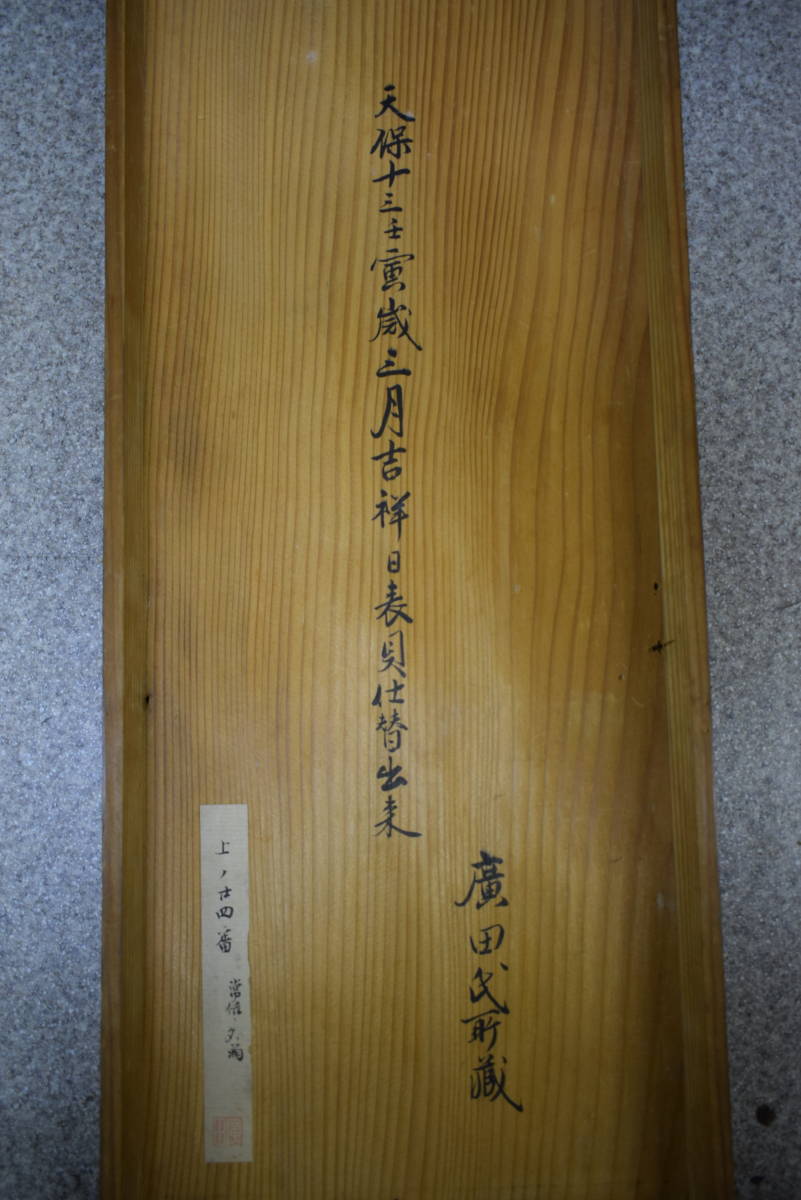 天保十三壬寅歳三月吉祥日表具仕替出来
廣田氏所藏
上ノ廿四番